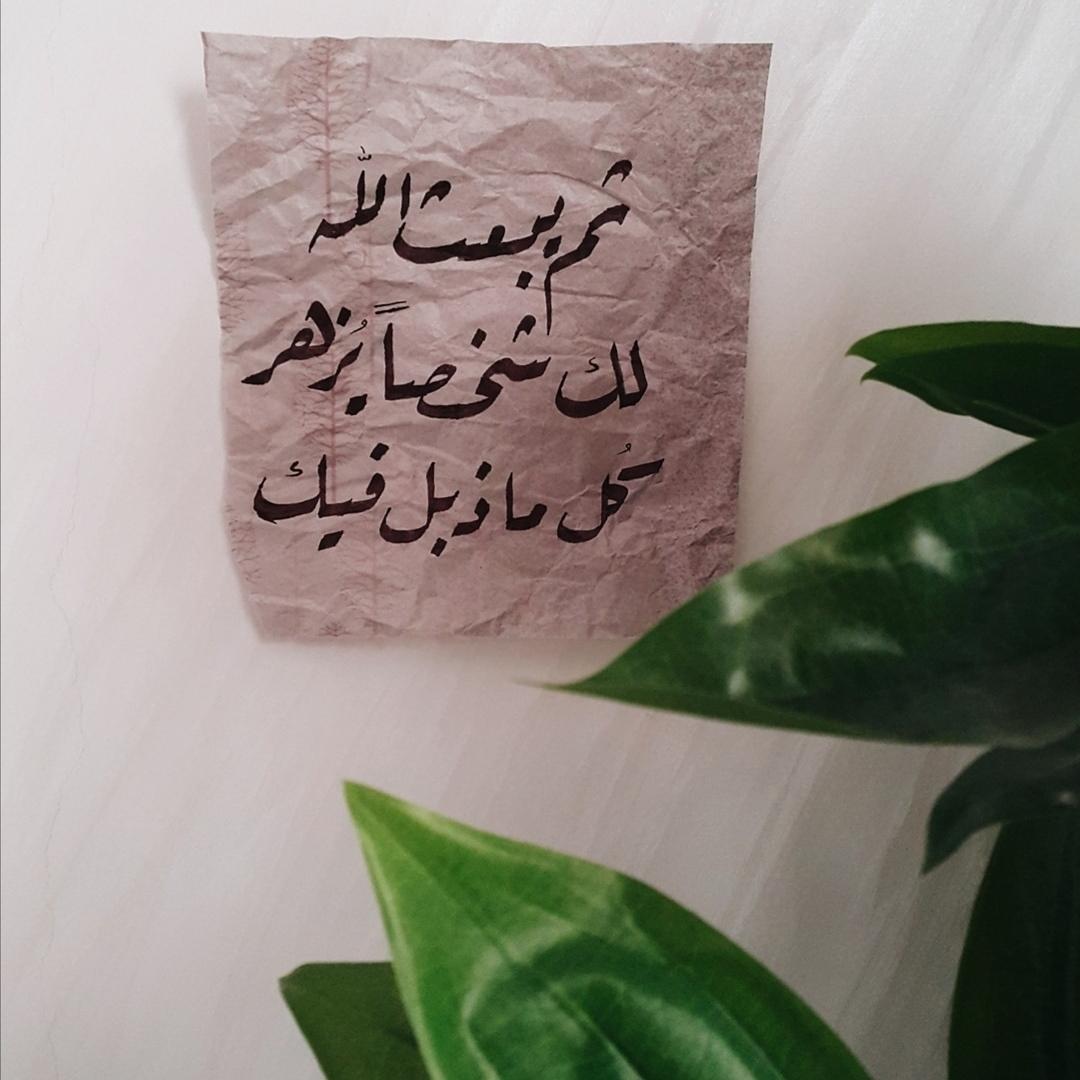 ثم يبعث الله
لك شخصاً يُزهر
كُل ما ذبل فيك